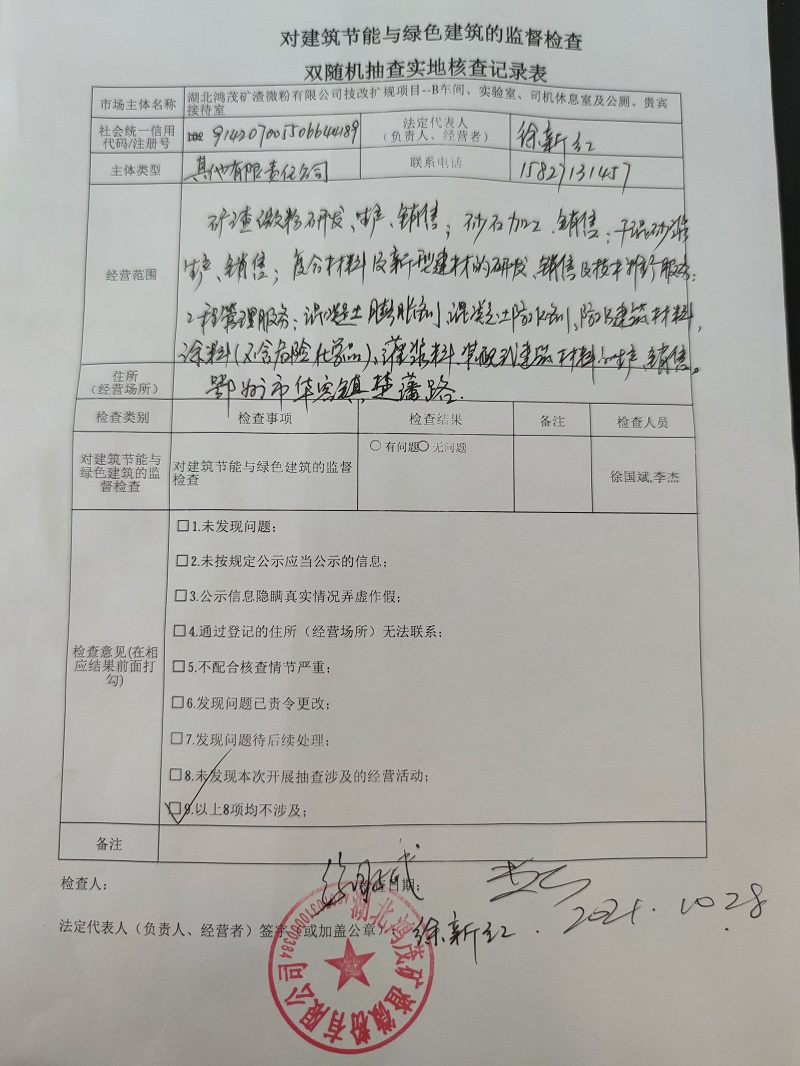 对建筑节能与绿色建筑的监督检查
双随机抽查实地核查记录表
市场主体名称 湖北鸿茂矿渣微粉有限公司技改扩规项目--B车间、实验室、司机休息室及公厕、贵宾
接待室
社会统一信用
代码/注册号
法定代表人
(负责人、经营者)
徐新红
主体类型 其他有限责任公司 联系电话 15827131457
经营范围
矿渣微粉研发、生产、销售；砂石加工、销售；干混砂浆
生产、销售；复合材料及新型建材的研发、销售及技术推广服务；
工程管理服务；混凝土膨胀剂、混凝土防水剂、防水建筑材料、
涂料(不含危险化学品)、灌浆料、装配式建筑材料的生产、销售。
住所
(经营场所)
鄂州市华容镇楚藩路.
检查类别 检查事项 检查结果 备注 检查人员
对建筑节能与
绿色建筑的监
督检查
对建筑节能与绿色建筑的监督
检查
○ 有问题○ 无问题
徐国斌,李杰
检查意见(在相
应结果前面打
勾)
□1.未发现问题;
□2.未按规定公示应当公示的信息;
□3.公示信息隐瞒真实情况弄虚作假;
□4.通过登记的住所（经营场所）无法联系;
□5.不配合核查情节严重;
□6.发现问题已责令更改;
□7.发现问题待后续处理;
□8.未发现本次开展抽查涉及的经营活动;
□9.以上8项均不涉及;
备注
检查人: 检查日期:
2021.10 28
法定代表人（负责人、经营者）签字 或加盖公章: 徐新红
湖北鸿茂矿渣微粉有限公司